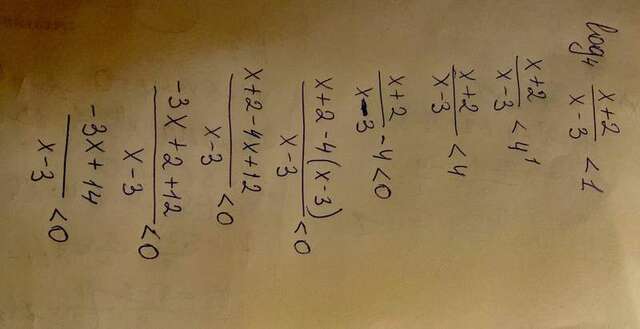 log₄ (x+2)/(x-3) < 1
(x+2)/(x-3) < 4¹
(x+2)/(x-3) < 4
(x+2)/(x-3) - 4 < 0
(x+2-4(x-3))/(x-3) < 0
(x+2-4x+12)/(x-3) < 0
(-3x+2+12)/(x-3) < 0
(-3x+14)/(x-3) < 0